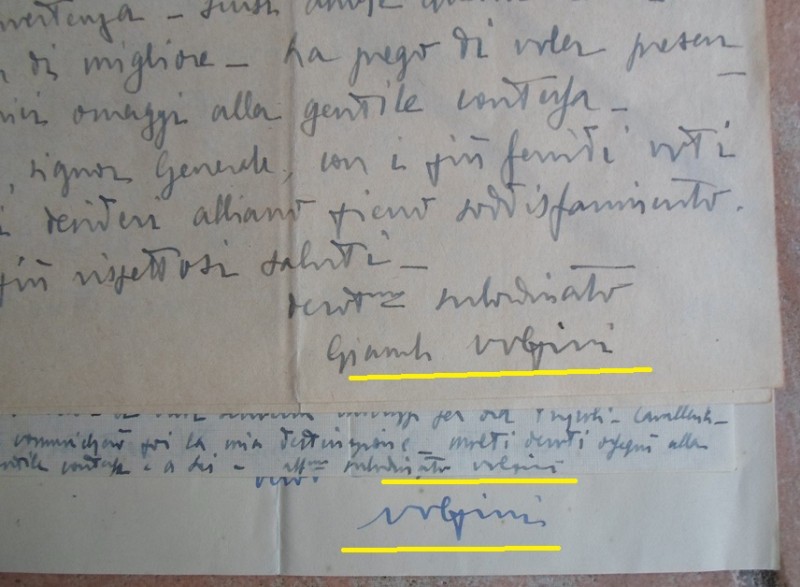 di migliore - La prego di voler presen-
miei omaggi alla gentile contessa -
, signor Generale, con i più fervidi voti
desideri abbiano pieno soddisfacimento.
più rispettosi saluti -
devot.mo subordinato
Giamb Volpini
comunicherò poi la mia destinazione - molti devoti ossequi alla
gentile contessa e a Lei - aff.mo subordinato Volpini
Volpini